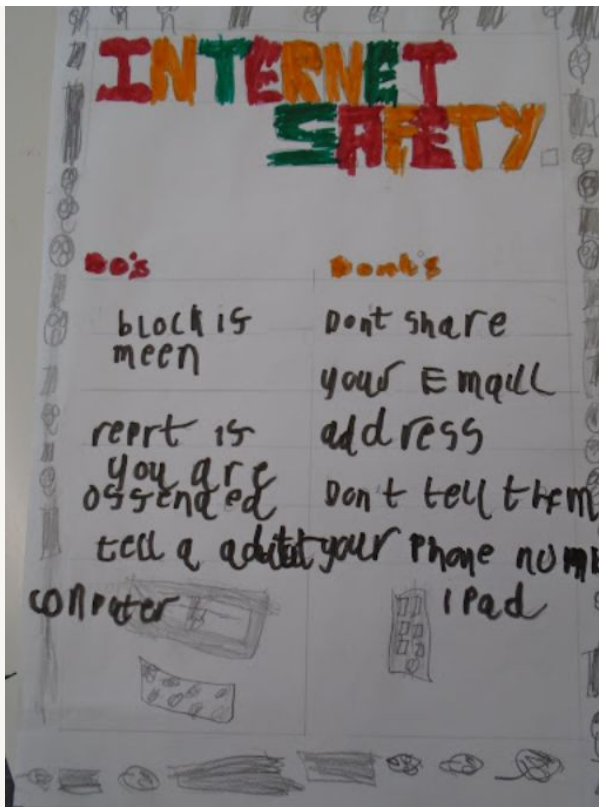 INTERNET
SAFETY
Do's
block is
meen
reprt is
you are
ossended
tell a
computer
Dont's
Dont share
your Emaill
address
Don't tell them
your phone num
ipad